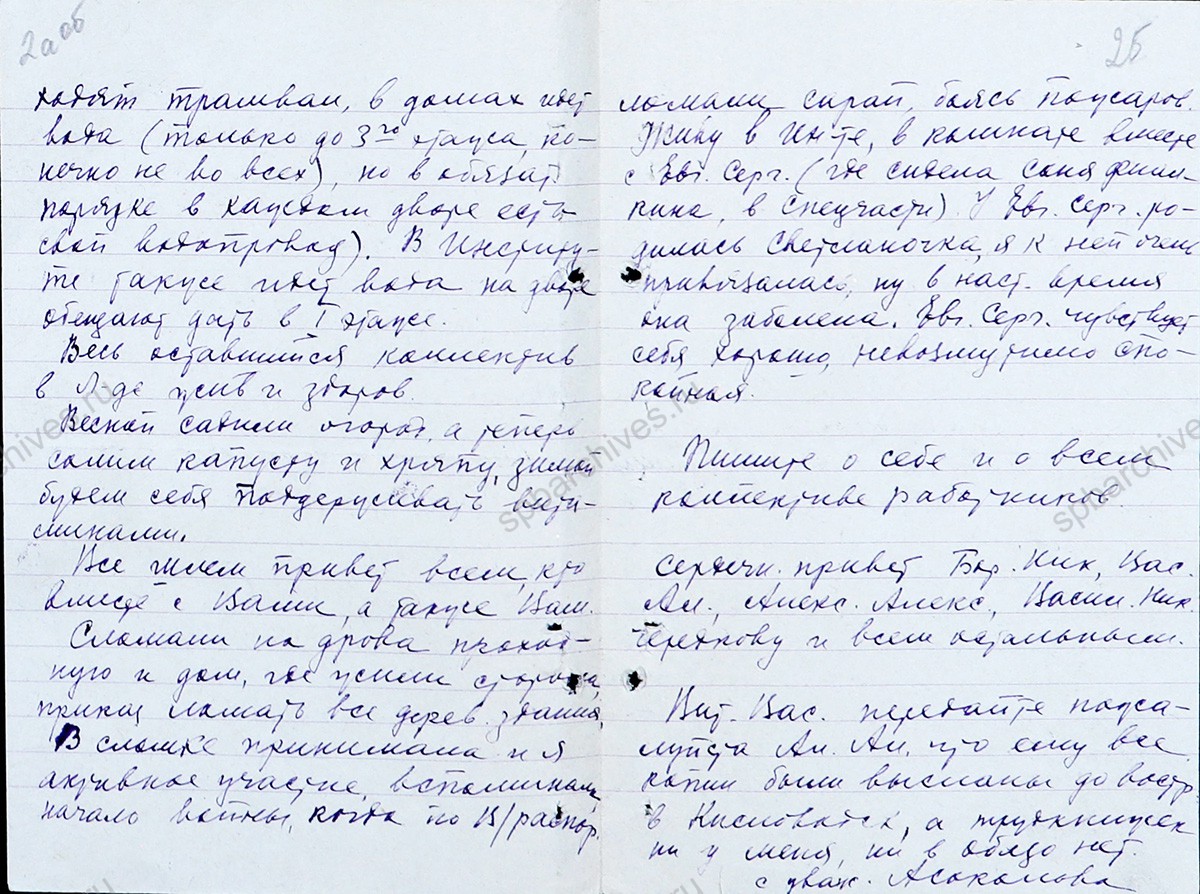 2а об
ходят трамваи, в домах идет
вода (только до 3го этажа, ко-
нечно не во всех), но в обязат.
порядке в каждом дворе есть
свой водопровод). В Институ-
те также идет вода на дворе
обещают дать в I этаже.
Весь оставшийся коллектив
в Л-де жив и здоров.
Весной садили огород, а теперь
солим капусту и хряпу, зимой
будем себя поддерживать вита-
минами.
Все шлем привет всем, кто
вместе с Вами, а также Вам.
Сломали на дрова проход-
ную и дом, где жили сторожа,
приказ ломать все дерев. здания,
В сломке принимала и я
активное участие, вспоминали
начало войны, когда по В/распор.
2б
ломали сарай, боясь пожаров.
Живу в Ин-те, в комнате вместе
с Евг. Серг. (где сидела Соня
в спецчасти). У Евг. Серг. ро-
дилась Светланочка, я к ней очень
привязалась, ну в наст. время
она заболела. Евг. Серг. чувствует
себя хорошо, невозмутимо спо-
койная.
Пишите о себе и о всем
коллективе работников.
Сердечн. привет Бор. Ник, Вас.
Ал., Алекс. Алекс., Васил. Ник.
Середкову и всем остальным.
Вит. Вас. передайте пожа-
луйста Ал. Ал. что ему все
копии были высланы до востр.
в Кисловодск, а трудкнижек
ни у меня, ни в облзо нет.
с уваж. АСоколова
spbarchives.ru
spbarchives.ru
spbarchives